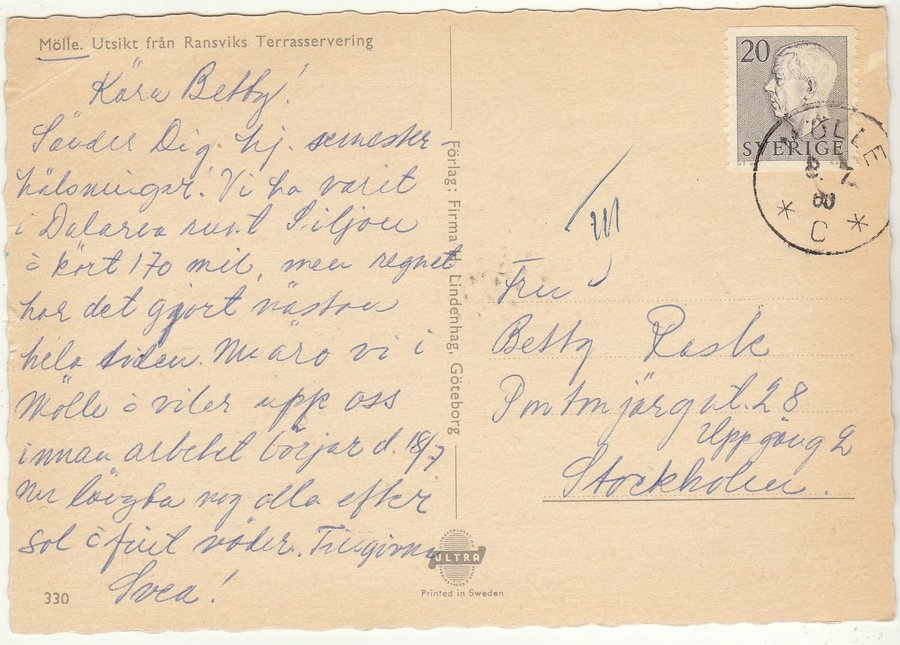 Mölle. Utsikt från Ransviks Terrasservering
Kära Betty!
Sänder Dig hj. semester-
hälsningar! Vi ha varit
i Dalarna runt Siljan
o kört 170 mil, men regnet
har det gjort nästan
hela tiden. Nu äro vi i
Mölle o viler upp oss
innan arbetet börjar d. 18/7
nu längta nog alla efter
sol o fint väder. Tillgivna
Svea!
330
Förlag: Firma H. Lindenhag, Göteborg
ULTRA
Printed in Sweden
20
SVERIGE
MÖLLE
C
Fru
Betty Rask
Pontonjärgat. 28
Uppgång 2
Stockholm.